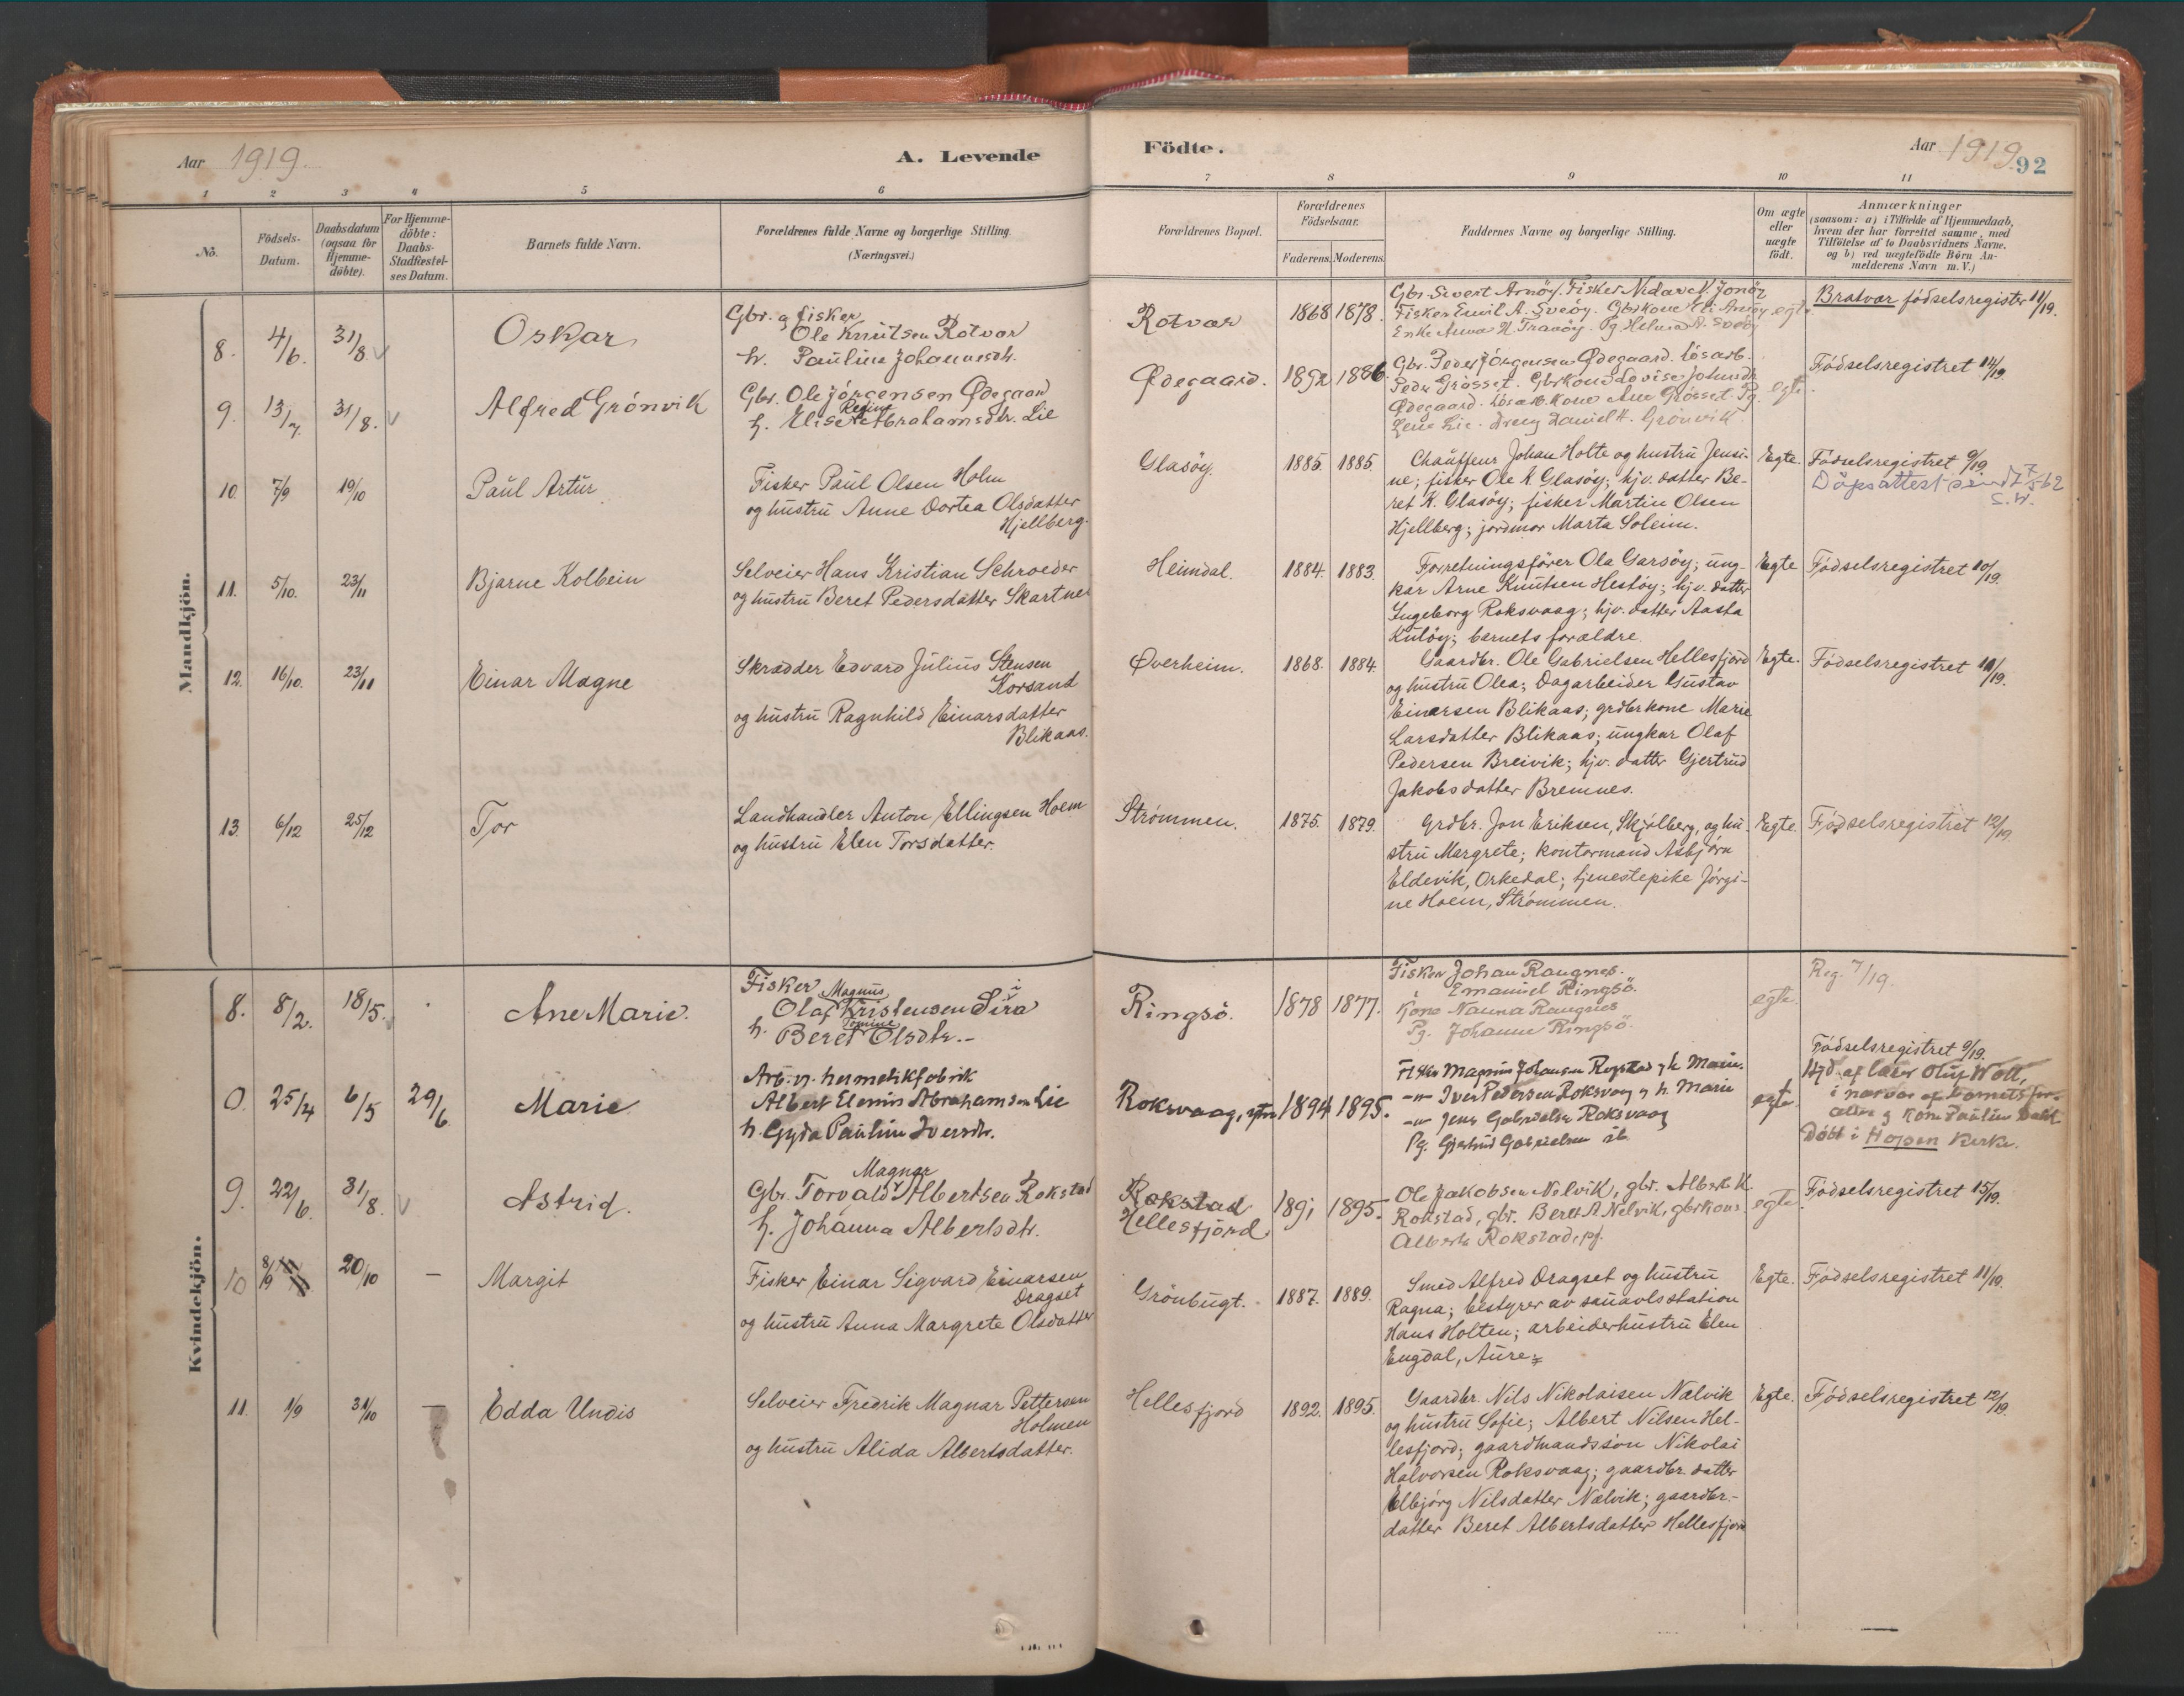 Aar 1919.
A. Levende
Födte.
Aar 1919
92
1 2 3 4 5 6 7 8 9 10 11
No.
Födsels-
Datum.
Daabsdatum
(ogsaa for
Hjemme-
döbte).
For Hjemme-
döbte:
Daabs-
Stadfæstel-
ses Datum.
Barnets fulde Navn.
Forældrenes fulde Navne og borgerlige Stilling.
(Næringsvei.)
Forældrenes Bopæl.
Forældrenes
Födselsaar.
Faderens. Moderens.
Faddernes Navne og borgerlige Stilling.
Om ægte
eller
uægte
födt.
Anmærkninger
(saasom: a) i Tilfælde af Hjemmedaab,
hvem der har forrettet samme, med
Tilföielse af to Daabsvidners Navne.
og b) ved uægtefödte Börn An-
melderens Navn m. V.)
Mandkjön.
8. 4/6. 31/8. v Oskar
Gbr. og fisker
Ole Knutsen Rotvær
h. Pauline Johannesdr.
Rotvær 1868 1878.
Gbr. Sivert Arnöy. Fisker Nidar N. Jonöy
Fisker Emil A. Sveöy. Gbrkone Eli Arnöy
Enke Anna N. Tranöy. Pg. Helma A. Sveöy
egte
Bratvær födselsregister 11/19.
9. 13/7. 31/8. v Alfred Grönvik
Gbr. Ole Jörgensen Ødegaard
h. Elise Regine Abrahamsdr. Lie
Ødegaard. 1892 1886.
Gbr. Peder Jörgensen Ødegaard. Lösarb.
Peder Grösset. Gbrkone Lovise Johnsdr.
Ødegaard. Lösarb.kone Ane Grösset. Pg.
Lene Lie. Dreng Daniel H. Grönvik
egte.
Födselsregistret 14/19.
10. 7/9 19/10 Paul Artur
Fisker Paul Olsen Holm
og hustru Anne Dortea Olsdatter
Hjellberg.
Glasöy. 1885. 1885.
Chauffeur Johan Holte og hustru Jensi-
ne; fisker Ole K. Glasöy; hjv. datter Be-
ret K. Glasöy; fisker Martin Olsen
Hjellberg; jordmor Marta Soleim.
Egte.
Födselsregistret 9/19.
Döpsattest send 7/5 62
11. 5/10. 23/11 Bjarne Kolbein
Selveier Hans Kristian Schroeder
og hustru Beret Pedersdatter Skartnes
Heimdal. 1884. 1883.
Forretningsförer Ola Garsöy; ung-
kar Arne Knutsen Hestöy; hjv. datter
Ingeborg Roksvaag; hjv. datter Aasta
Kulöy; barnets forældre.
Egte
Födselsregistret 10/19.
12. 16/10. 23/11 Einar Magne
Skrædder Edvard Julius Stensen
Korsand
og hustru Ragnhild Einarsdatter
Blikaas.
Øverheim. 1868. 1884.
Gaardbr. Ole Gabrielsen Hellesfjord
og hustru Olea; Dagarbeider Gustav
Einarsen Blikaas; grdbrkone Marie
Larsdatter Blikaas; ungkar Olaf
Pedersen Breivik; hjv. datter Gjertrud
Jakobsdatter Bremnes.
Egte.
Födselsregistret 11/19.
13. 6/12 25/12 Tor
Landhandler Anton Ellingsen Hoem
og hustru Elen Torsdatter.
Strömmen. 1875. 1879.
Grdbr. Jon Eriksen, Skjölberg, og hu-
stru Margrete; kontormand Asbjörn
Eldevik, Orkedal; tjenestepike Jörgi-
ne Hoem, Strömmen.
Egte.
Födselsregistret 12/19.
Kvindekjön.
8. 8/2. 18/5. Ane Marie.
Fisker
Olaf Magnus Kristensen Sira
h. Beret Tomine Olsdtr.
Ringsö. 1878 1877.
Fisker Johan Raugnes.
Emanuel Ringsö.
Kone Nanna Raugnes
Pg. Johanne Ringsö.
egte.
Reg. 7/19.
0. 25/4 6/5 29/6. Marie
Arb. v. hermetikfabrik
Albert Elenius Abrahamsen Lie
h. Gyda Pauline Iversdr.
Roksvaag, ytre 1894 1895.
Fisker Magnus Johansen Rogstad og h. Marie.
-"- Iver Pedersen Roksvaag og h. Marie
-"- Jens Gabrielsen Roksvaag
Pg. Gjertrud Gabrielsen ib.
egte.
Födselsregistret 9/19.
Hjd. af lærer Oluf Woll,
i nærvær af barnets for-
ældre og Kone Pauline
Döbt i Hopen Kirke.
9. 22/6. 31/8. v Astrid.
Gbr. Torvald Magnar Albertsen Rokstad
h. Johanna Albertsdtr.
Rokstad
Hellesfjord 1891 1895.
Ole Jakobsen Nelvik, gbr. Albert K.
Rokstad, gbr. Beret A. Nelvik, gbrkone.
Alberte Rokstad, pg.
egte.
Födselsregistret 15/19.
10 8/9 20/10 — Margit
Fisker Einar Sigvard Einarsen
Dragset
og hustru Anna Margrete Olsdatter
Grönbugt. 1887. 1889.
Smed Alfred Dragset og hustru
Ragna; bestyrer av sauavlsstation
Hans Holten; arbeiderhustru Elen
Engdal, Aure.
Egte.
Födselsregistret 11/19.
11. 1/9 31/10 — Edda Undis
Selveier Fredrik Magnar Pettersen
Holmen
og hustru Alida Albertsdatter.
Hellesfjord 1892. 1895.
Gaardbr. Nils Nikolaisen Nælvik
og hustru Sofie; Albert Nilsen Hel-
lesfjord; gaardmandssön Nikolai
Halvorsen Roksvaag; gaardbr. datter
Elbjörg Nilsdatter Nælvik; gaardbr.-
datter Beret Albertsdatter Hellesfjord
Egte.
Födselsregistret 12/19.